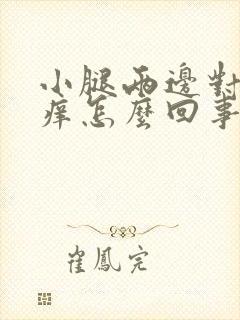 小腿兩邊對
痒怎麼回事
崔鳳完